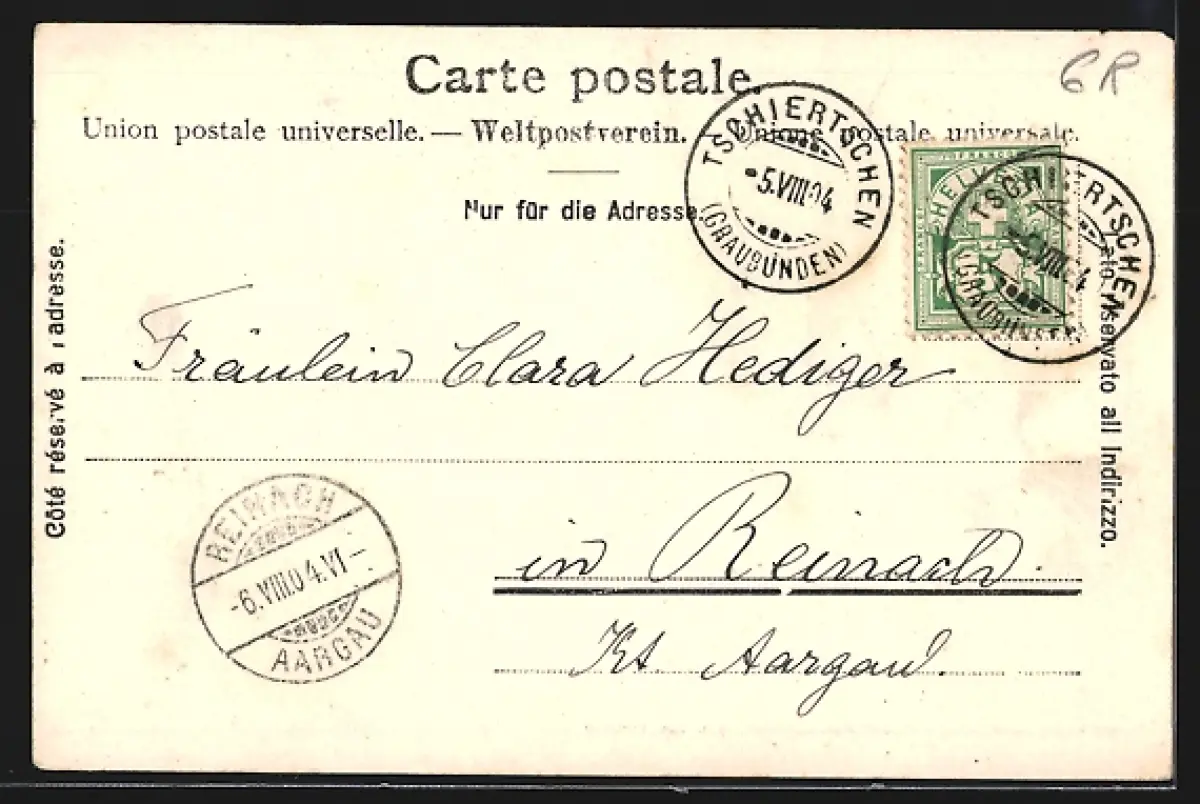 GR
Carte postale.
Union postale universelle. — Weltpostverein. — Unione postale universale.
Nur für die Adresse
TSCHIERTSCHEN
-5.VIII.04
(GRAUBÜNDEN)
FRANCO
HELVETIA
TSCHIERTSCHEN
-5.VIII.04
(GRAUBÜNDEN)
Côté réservé à l'adresse.
riservato all Indirizzo.
Fräulein Clara Hediger
in Reinach.
Kt. Aargau.
REINACH
-6.VIII.04.VI-
AARGAU